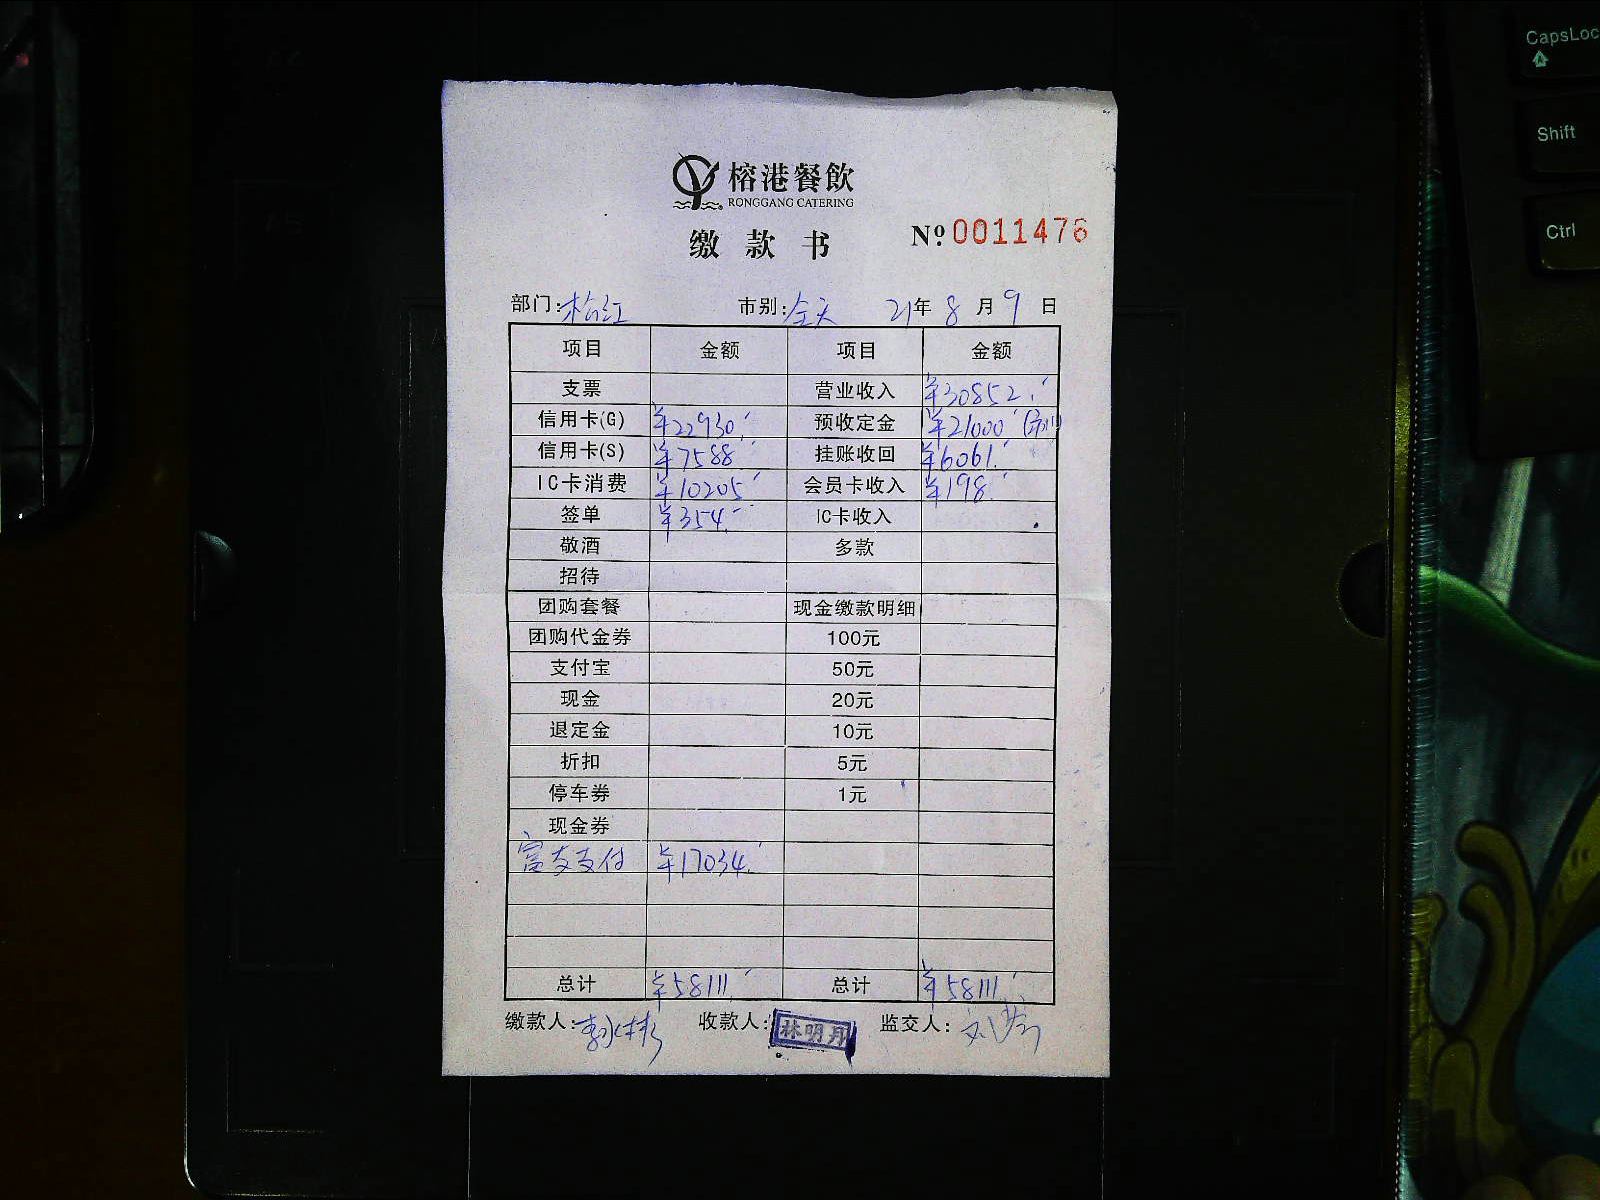 榕港餐飲
RONGGANG CATERING
缴款书 Nº 0011476
部门: 松江 市别: 全天 21年 8月 9日
项目 金额 项目 金额
支票 营业收入 ¥30852.-
信用卡(G) ¥22930.- 预收定金 ¥21000.-
信用卡(S) ¥7588.- 挂账收回 ¥6061.-
IC卡消费 ¥10205.- 会员卡收入 ¥198.-
签单 ¥354.- IC卡收入
敬酒 多款
招待
团购套餐 现金缴款明细
团购代金券 100元
支付宝 50元
现金 20元
退定金 10元
折扣 5元
停车券 1元
现金券
富友支付 ¥17034.-
总计 ¥58111.- 总计 ¥58111.-
缴款人: 收款人: 林明丹 监交人:
CapsLoc
Shift
Ctrl